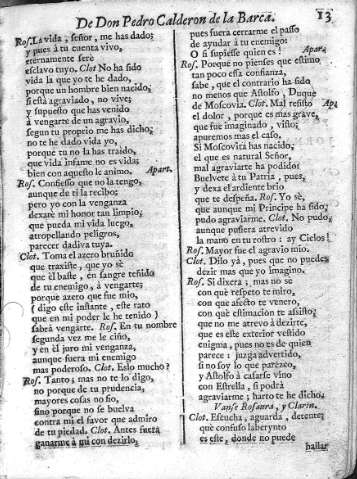 De Don Pedro Calderon de la Barca.
13
Ros. La vida, señor, me has dado;
y pues à tu cuenta vivo,
eternamente serè
esclavo tuyo. Clot. No ha sido
vida la que yo te he dado,
porque un hombre bien nacido,
si està agraviado, no vive;
y supuesto que has venido
à vengarte de un agravio,
segun tu proprio me has dicho;
no te he dado vida yo,
porque tu no la has traido,
que vida infame no es vida:
bien con aquesto le animo. Apart.
Ros. Confiesso que no la tengo,
aunque de ti la recibo;
pero yo con la venganza
dexarè mi honor tan limpio,
que pueda mi vida luego,
atropellando peligros,
parecer dadiva tuya.
Clot. Toma el azero bruñido
que traxiste, que yo sè
que èl baste, en sangre teñido
de tu enemigo, à vengarte;
porque azero que fue mio,
( digo este instante, este rato
que en mi poder le he tenido )
sabrà vengarte. Ros. En tu nombre
segunda vez me le ciño,
y en èl juro mi venganza,
aunque fuera mi enemigo
mas poderoso. Clot. Eslo mucho?
Ros. Tanto; mas no te lo digo,
no porque de tu prudencia,
mayores cosas no fio,
sino porque no se buelva
contra mi el favor que admiro
de tu piedad. Clot. Antes fuera
ganarme à mi con dezirlo,
pues fuera cerrarme el passo
de ayudar à tu enemigo:
O si supiesse quien es! Apar.
Ros. Porque no pienses que estimo
tan poco essa confianza,
sabe, que el contrario ha sido
no menos que Astolfo, Duque
de Moscovia. Clot. Mal resisto Ap.
el dolor, porque es mas grave,
que fue imaginado, visto;
apuremos mas el caso.
Si Moscovita has nacido,
el que es natural Señor,
mal agraviarte ha podido:
Buelvete à tu Patria, pues,
y dexa el ardiente brio
que te despeña. Ros. Yo sè,
que aunque mi Principe ha sido,
pudo agraviarme. Clot. No pudo,
aunque pusiera atrevido
la mano en tu rostro: ay Cielos!
Ros. Mayor fue el agravio mio.
Clot. Dilo yà, pues que no puedes
dezir mas que yo imagino.
Ros. Si dixera; mas no sè
con què respeto te miro,
con què afecto te venero,
con què estimacion te assisto;
que no me atrevo à dezirte,
que es este exterior vestido
enigma, pues no es de quien
parece: juzga advertido,
si no soy lo que parezco,
y Astolfo à casarse vino
con Estrella, si podrà
agraviarme; harto te he dicho.
Vanse Rosaura, y Clarin.
Clot. Escucha, aguarda, detente;
què confuso laberynto
es este, donde no puede
hallar